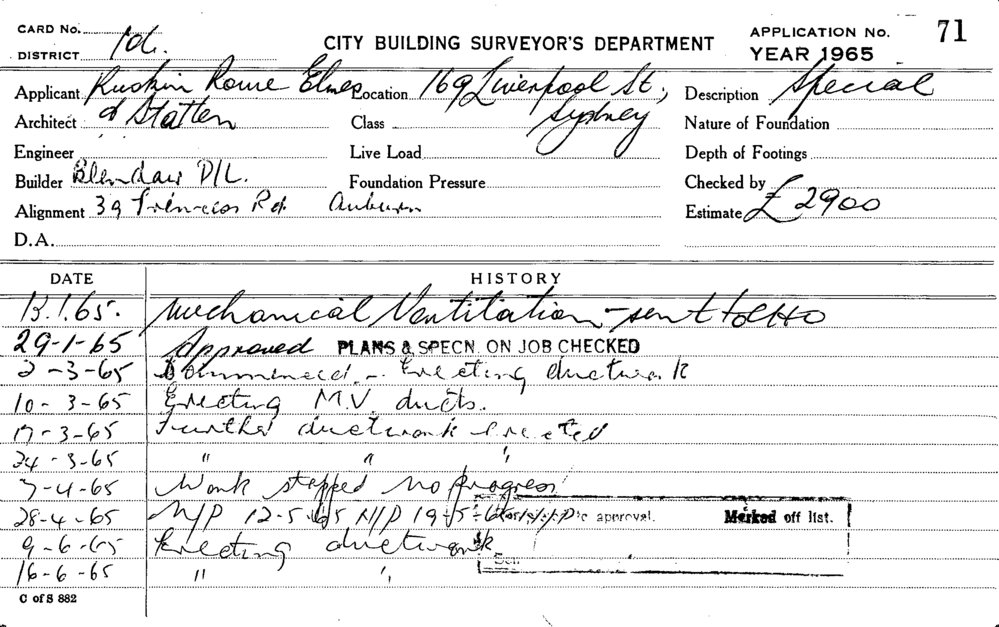 CARD No.
DISTRICT 1d.
CITY BUILDING SURVEYOR'S DEPARTMENT
APPLICATION No. 71
YEAR 1965
Applicant Ruskin Rowe Elmes Location 169 Liverpool St., Description Special
Architect & Statten Class Sydney Nature of Foundation
Engineer Live Load Depth of Footings
Builder P/L. Foundation Pressure Checked by
Alignment 39 Rd. Auburn Estimate £2900
D.A.
DATE HISTORY
13.1.65. Mechanical Ventilation - sent to
29-1-65 Approved PLANS & SPECN. ON JOB CHECKED
2-3-65 Commenced - Erecting ductwork
10-3-65 Erecting M.V. ducts.
17-3-65 Further ductwork erected
24-3-65 " " "
7-4-65 Work stopped no progress
28-4-65 N/P 12-5-65 N/P 19-5-65 N/P approval. Marked off list.
9-6-65 Erecting ductwork.
16-6-65 " "
C of S 882